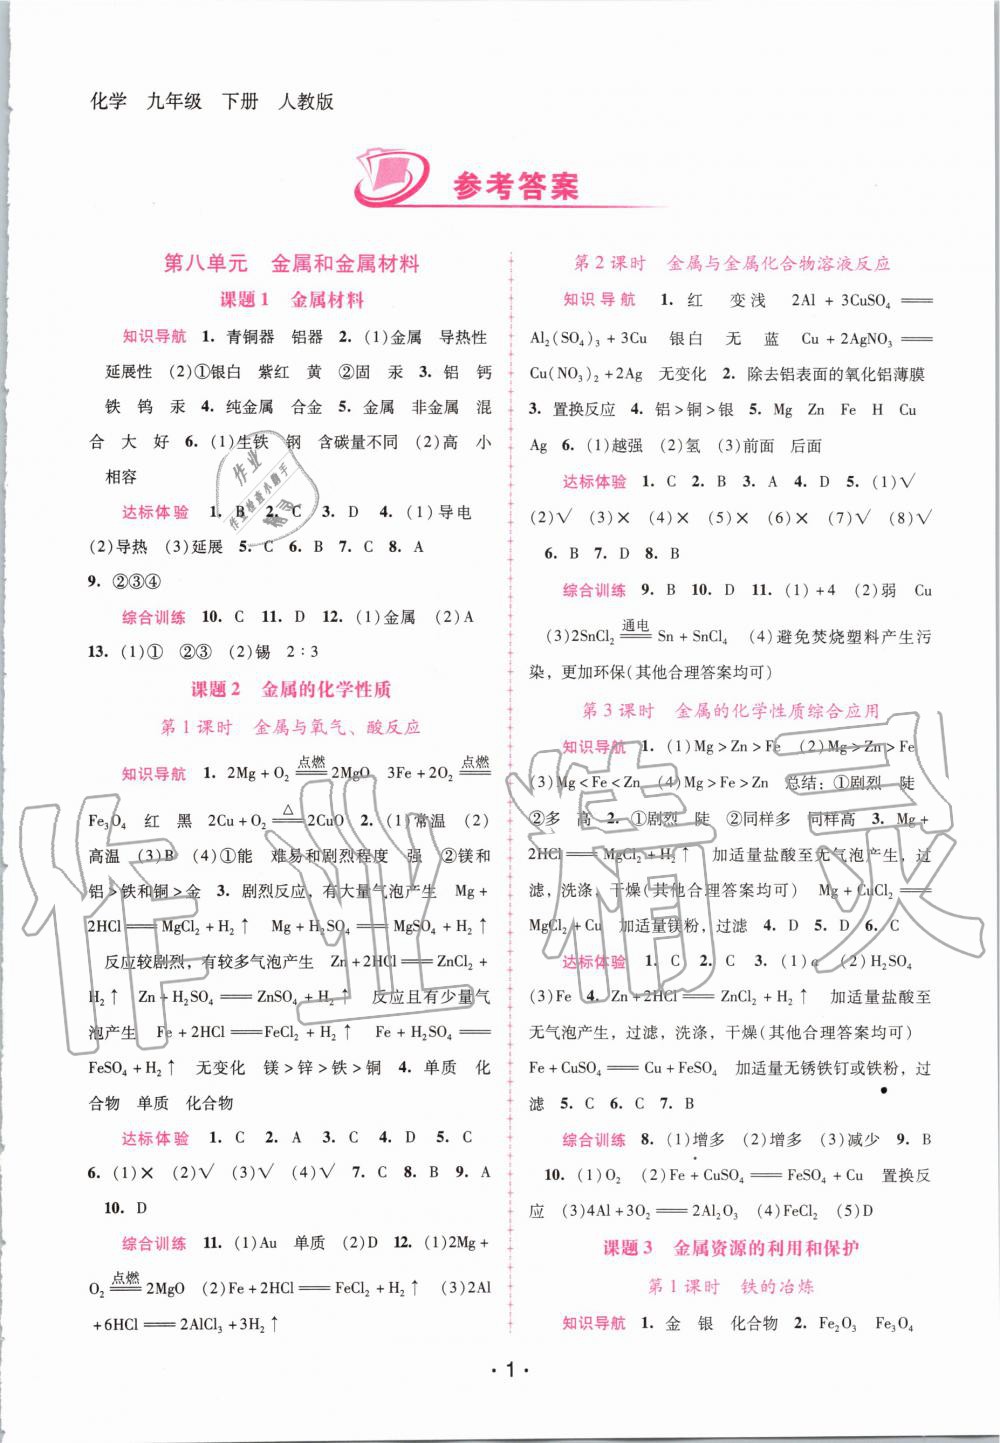 化学　九年级　下册　人教版
参考答案
第八单元　金属和金属材料
课题1　金属材料
知识导航　1. 青铜器　铝器　2. (1)金属　导热性
延展性　(2)①银白　紫红　黄　②固　汞　3. 铝　钙
铁　钨　汞　4. 纯金属　合金　5. 金属　非金属　混
合　大　好　6. (1)生铁　钢　含碳量不同　(2)高　小
相容
达标体验　1. B　2. C　3. D　4. (1)导电
(2)导热　(3)延展　5. C　6. B　7. C　8. A
9. ②③④
综合训练　10. C　11. D　12. (1)金属　(2)A
13. (1)①　②③　(2)锡　2∶3
课题2　金属的化学性质
第1课时　金属与氧气、酸反应
知识导航　1. 2Mg+O₂ 点燃══ 2MgO　3Fe+2O₂ 点燃══
Fe₃O₄　红　黑　2Cu+O₂ △══ 2CuO　2. (1)常温　(2)
高温　(3)B　(4)①能　难易和剧烈程度　强　②镁和
铝>铁和铜>金　3. 剧烈反应,有大量气泡产生　Mg+
2HCl══MgCl₂+H₂↑　Mg+H₂SO₄══MgSO₄+H₂↑
反应较剧烈,有较多气泡产生　Zn+2HCl══ZnCl₂+
H₂↑　Zn+H₂SO₄══ZnSO₄+H₂↑　反应且有少量气
泡产生　Fe+2HCl══FeCl₂+H₂↑　Fe+H₂SO₄══
FeSO₄+H₂↑　无变化　镁>锌>铁>铜　4. 单质　化
合物　单质　化合物
达标体验　1. C　2. A　3. C　4. D　5. C
6. (1)×　(2)√　(3)√　(4)√　7. C　8. B　9. A
10. D
综合训练　11. (1)Au　单质　(2)D　12. (1)2Mg+
O₂ 点燃══ 2MgO　(2)Fe+2HCl══FeCl₂+H₂↑　(3)2Al
+6HCl══2AlCl₃+3H₂↑
第2课时　金属与金属化合物溶液反应
知识导航　1. 红　变浅　2Al+3CuSO₄══
Al₂(SO₄)₃+3Cu　银白　无　蓝　Cu+2AgNO₃══
Cu(NO₃)₂+2Ag　无变化　2. 除去铝表面的氧化铝薄膜
3. 置换反应　4. 铝>铜>银　5. Mg　Zn　Fe　H　Cu
Ag　6. (1)越强　(2)氢　(3)前面　后面
达标体验　1. C　2. B　3. A　4. D　5. (1)√
(2)√　(3)×　(4)×　(5)×　(6)×　(7)√　(8)√
6. B　7. D　8. B
综合训练　9. B　10. D　11. (1)+4　(2)弱　Cu
(3)2SnCl₂ 通电══ Sn+SnCl₄　(4)避免焚烧塑料产生污
染,更加环保(其他合理答案均可)
第3课时　金属的化学性质综合应用
知识导航　1. (1)Mg>Zn>Fe　(2)Mg>Zn>Fe
(3)Mg<Fe<Zn　(4)Mg>Fe>Zn　总结:①剧烈　陡
②多　高　2. ①剧烈　陡　②同样多　同样高　3. Mg+
2HCl══MgCl₂+H₂↑　加适量盐酸至无气泡产生,过
滤,洗涤,干燥(其他合理答案均可)　Mg+CuCl₂══
MgCl₂+Cu　加适量镁粉,过滤　4. D　5. D　6. C
达标体验　1. C　2. C　3. (1)a　(2)H₂SO₄
(3)Fe　4. Zn+2HCl══ZnCl₂+H₂↑　加适量盐酸至
无气泡产生,过滤,洗涤,干燥(其他合理答案均可)
Fe+CuSO₄══Cu+FeSO₄　加适量无锈铁钉或铁粉,过
滤　5. C　6. C　7. B
综合训练　8. (1)增多　(2)增多　(3)减少　9. B
10. (1)O₂　(2)Fe+CuSO₄══FeSO₄+Cu　置换反
应　(3)4Al+3O₂══2Al₂O₃　(4)FeCl₂　(5)D
课题3　金属资源的利用和保护
第1课时　铁的冶炼
知识导航　1. 金　银　化合物　2. Fe₂O₃　Fe₃O₄
· 1 ·
作业精灵
作业
作业检查小助手
精灵